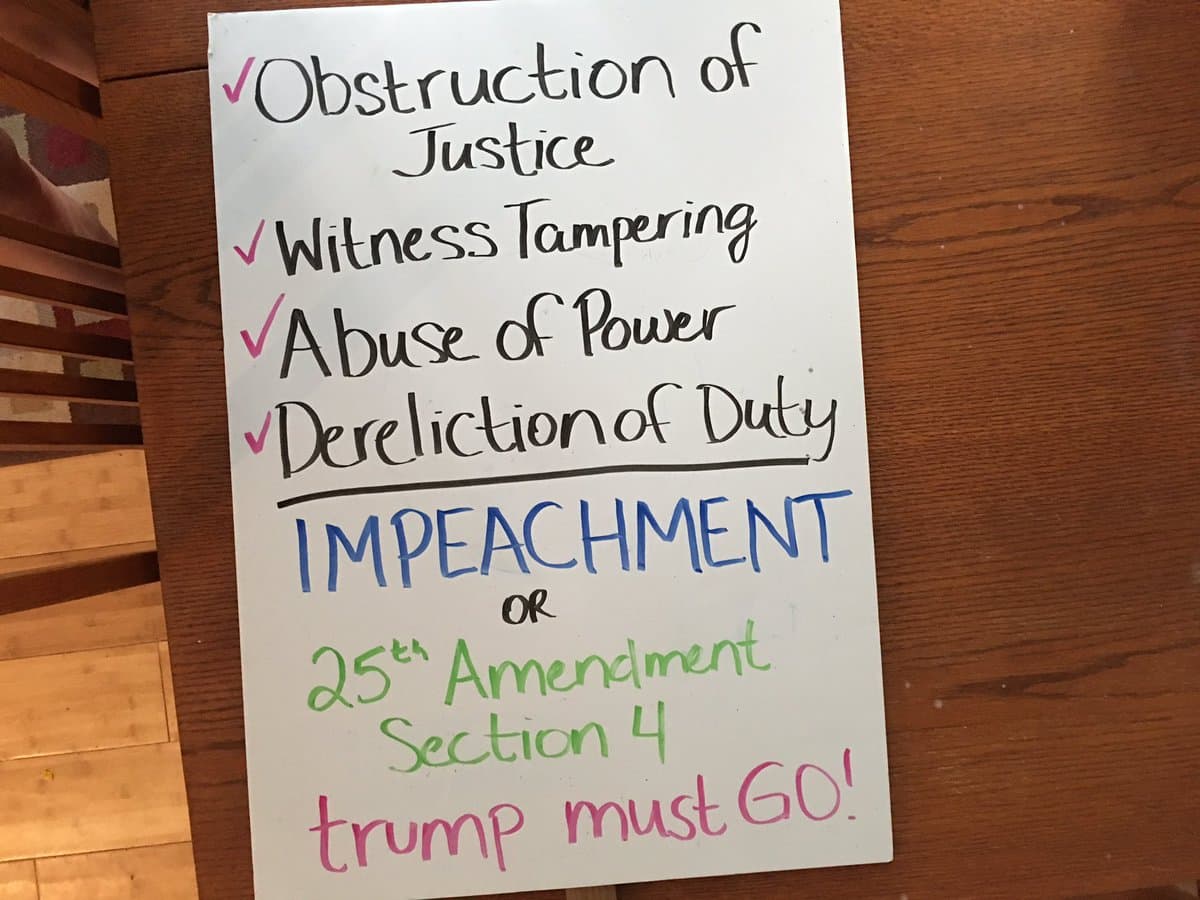 ✓Obstruction of
Justice
✓Witness Tampering
✓Abuse of Power
✓Dereliction of Duty
IMPEACHMENT
OR
25th Amendment
Section 4
trump must GO!